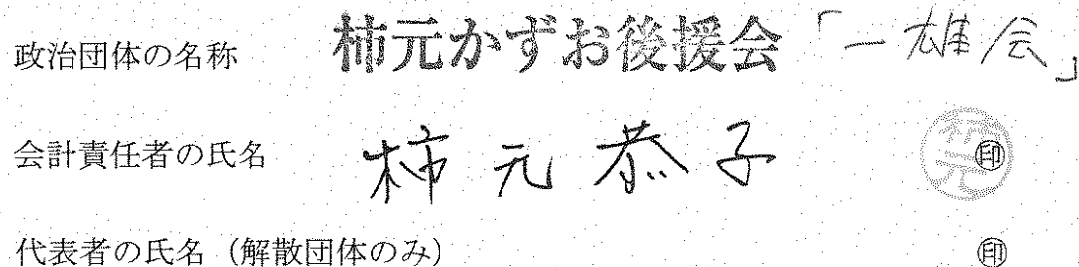 政治団体の名称 柿元かずお後援会「一雄会」
会計責任者の氏名 柿元恭子 柿元 ㊞
代表者の氏名（解散団体のみ） ㊞